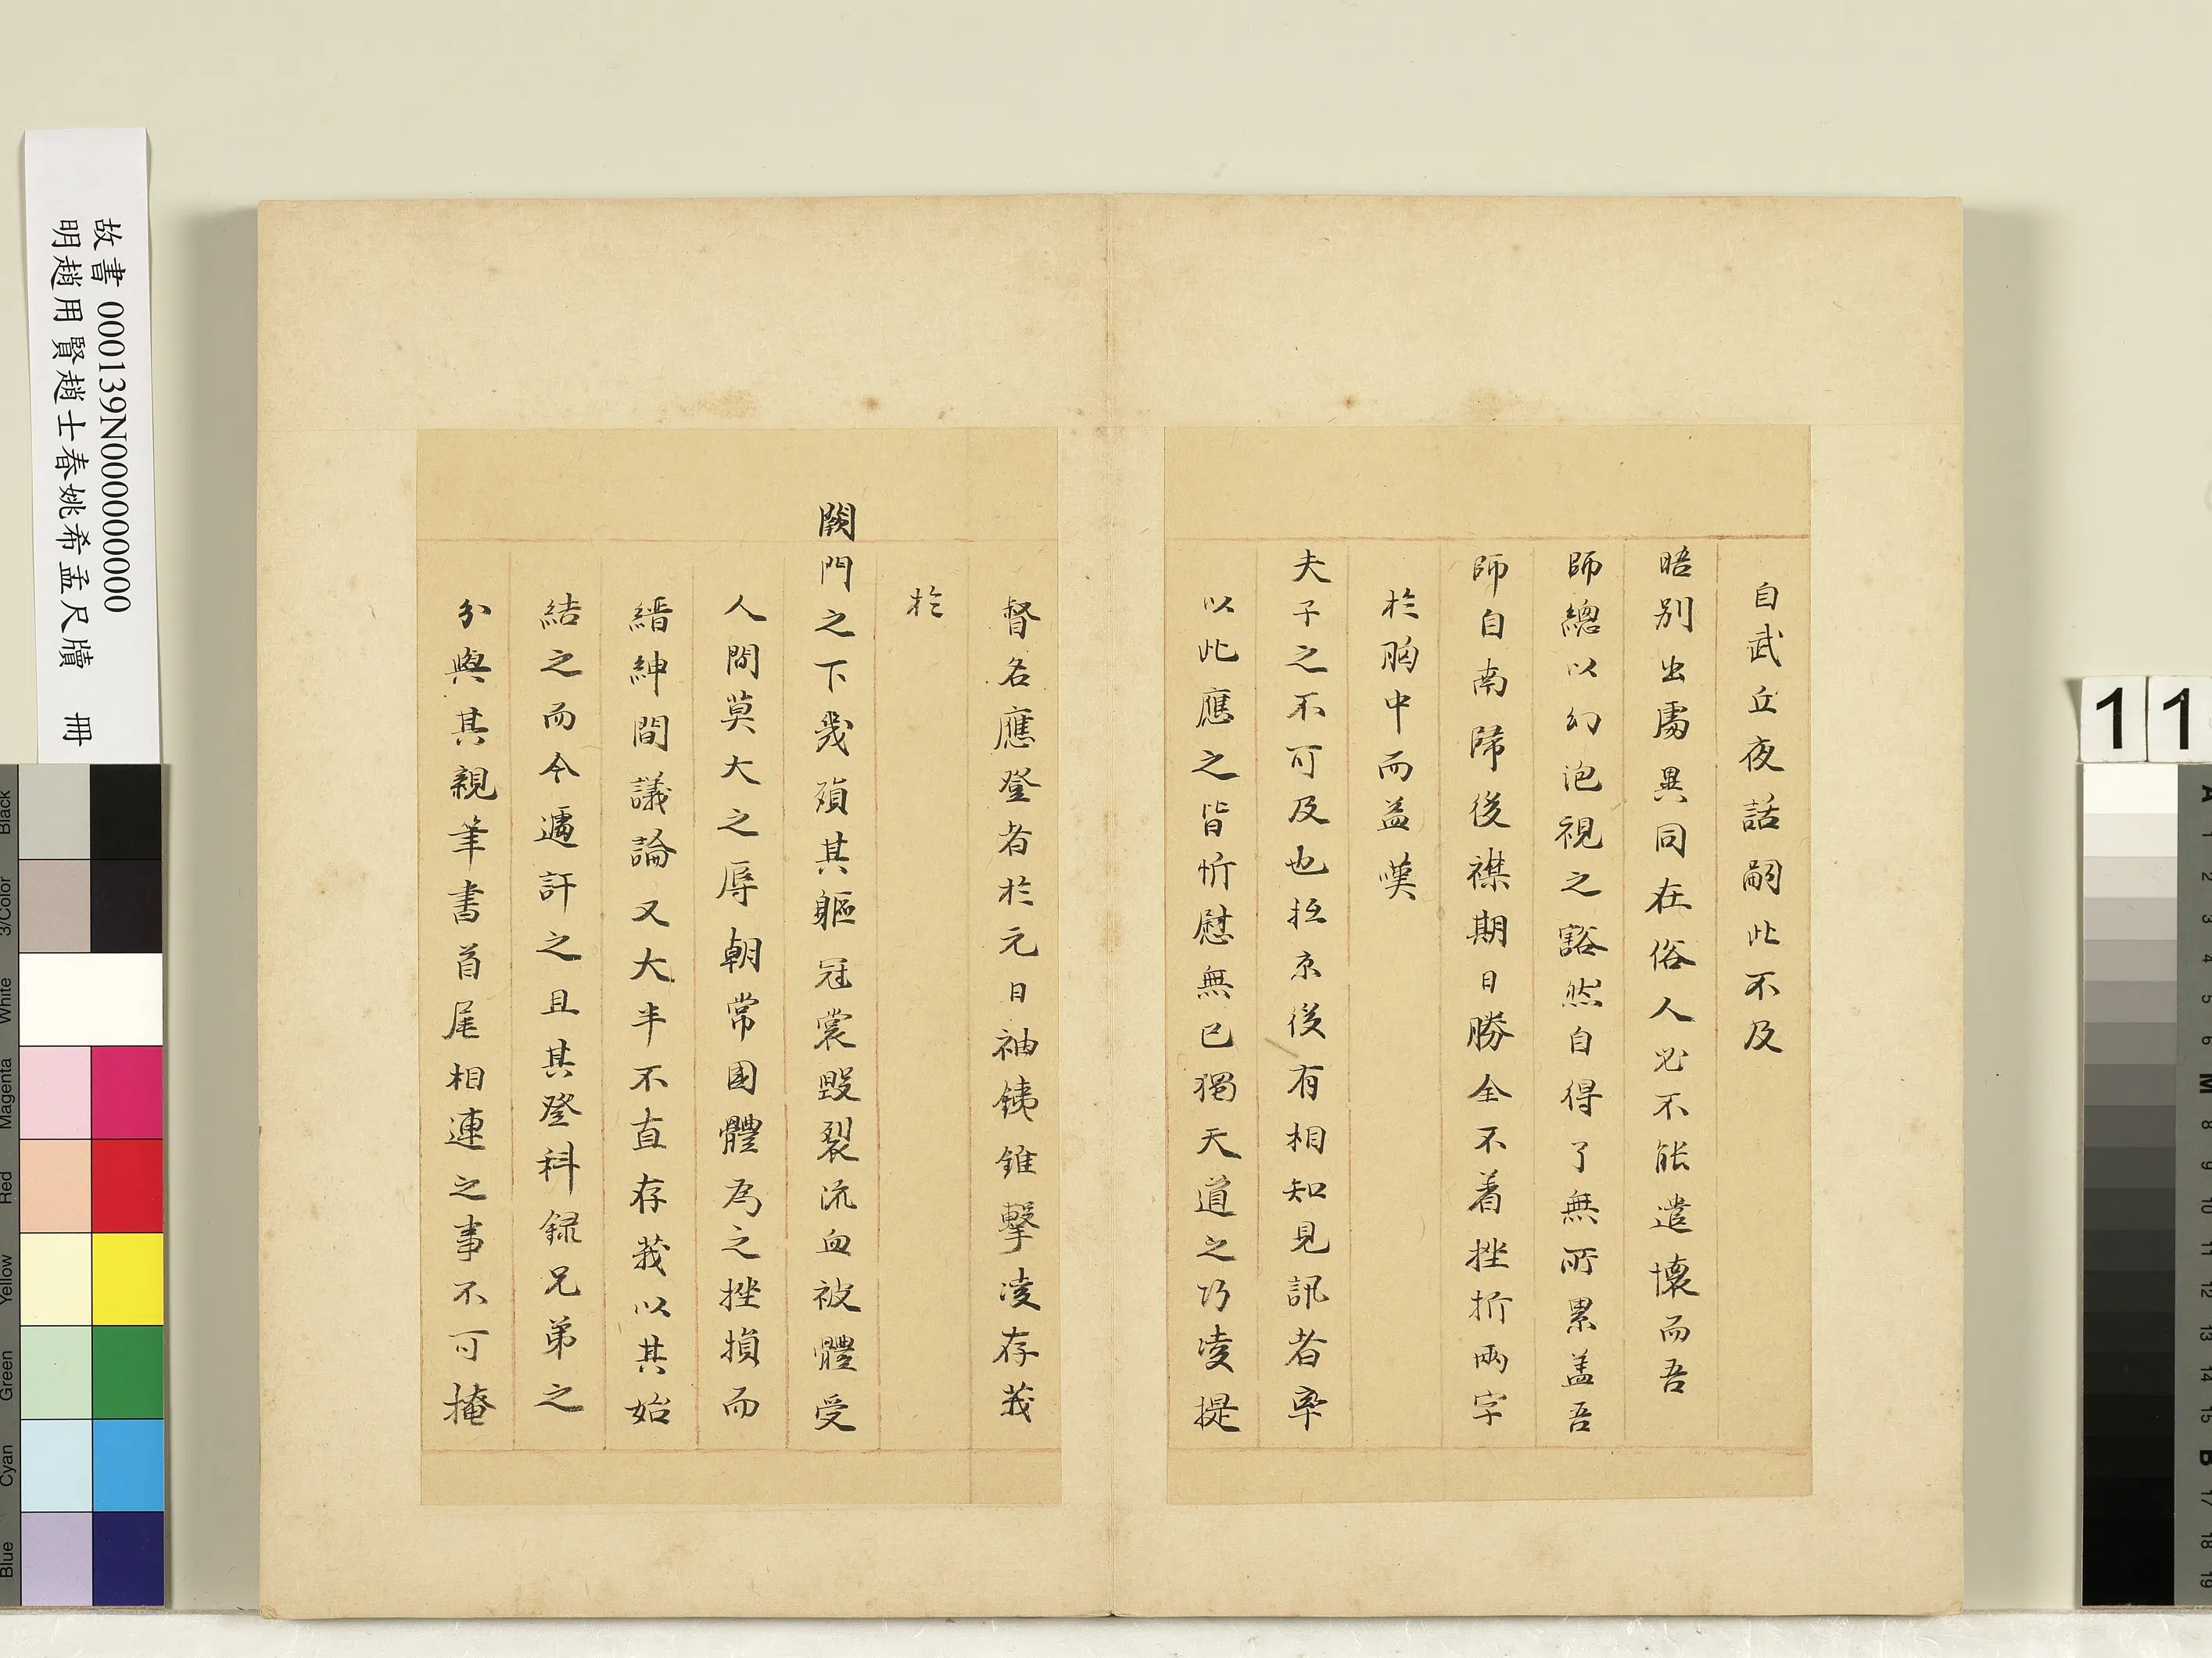 自武丘夜話嗣此不及
晤別出處異同在俗人必不能遣懷而吾
師總以幻泡視之豁然自得了無所累盖吾
師自南歸後襟期日勝全不着挫折兩字
於胸中而益嘆
夫子之不可及也抵京後有相知見訊者率
以此應之皆忻慰無已獨天道之巧凌提
督名應登者於元日袖鐵錐擊凌存義
於
闕門之下幾殞其軀冠裳毀裂流血被體受
人間莫大之辱朝常國體為之挫損而
縉紳間議論又大半不直存義以其始
結之而今遍訐之且其登科録兄弟之
分與其親筆書首尾相連之事不可掩
故書 000139N000000000
明趙用賢趙士春姚希孟尺牘 冊
11
Black
3/Color
White
Magenta
Red
Yellow
Green
Cyan
Blue
A
1
2
3
4
5
6
M
8
9
10
11
12
13
14
15
B
17
18
19